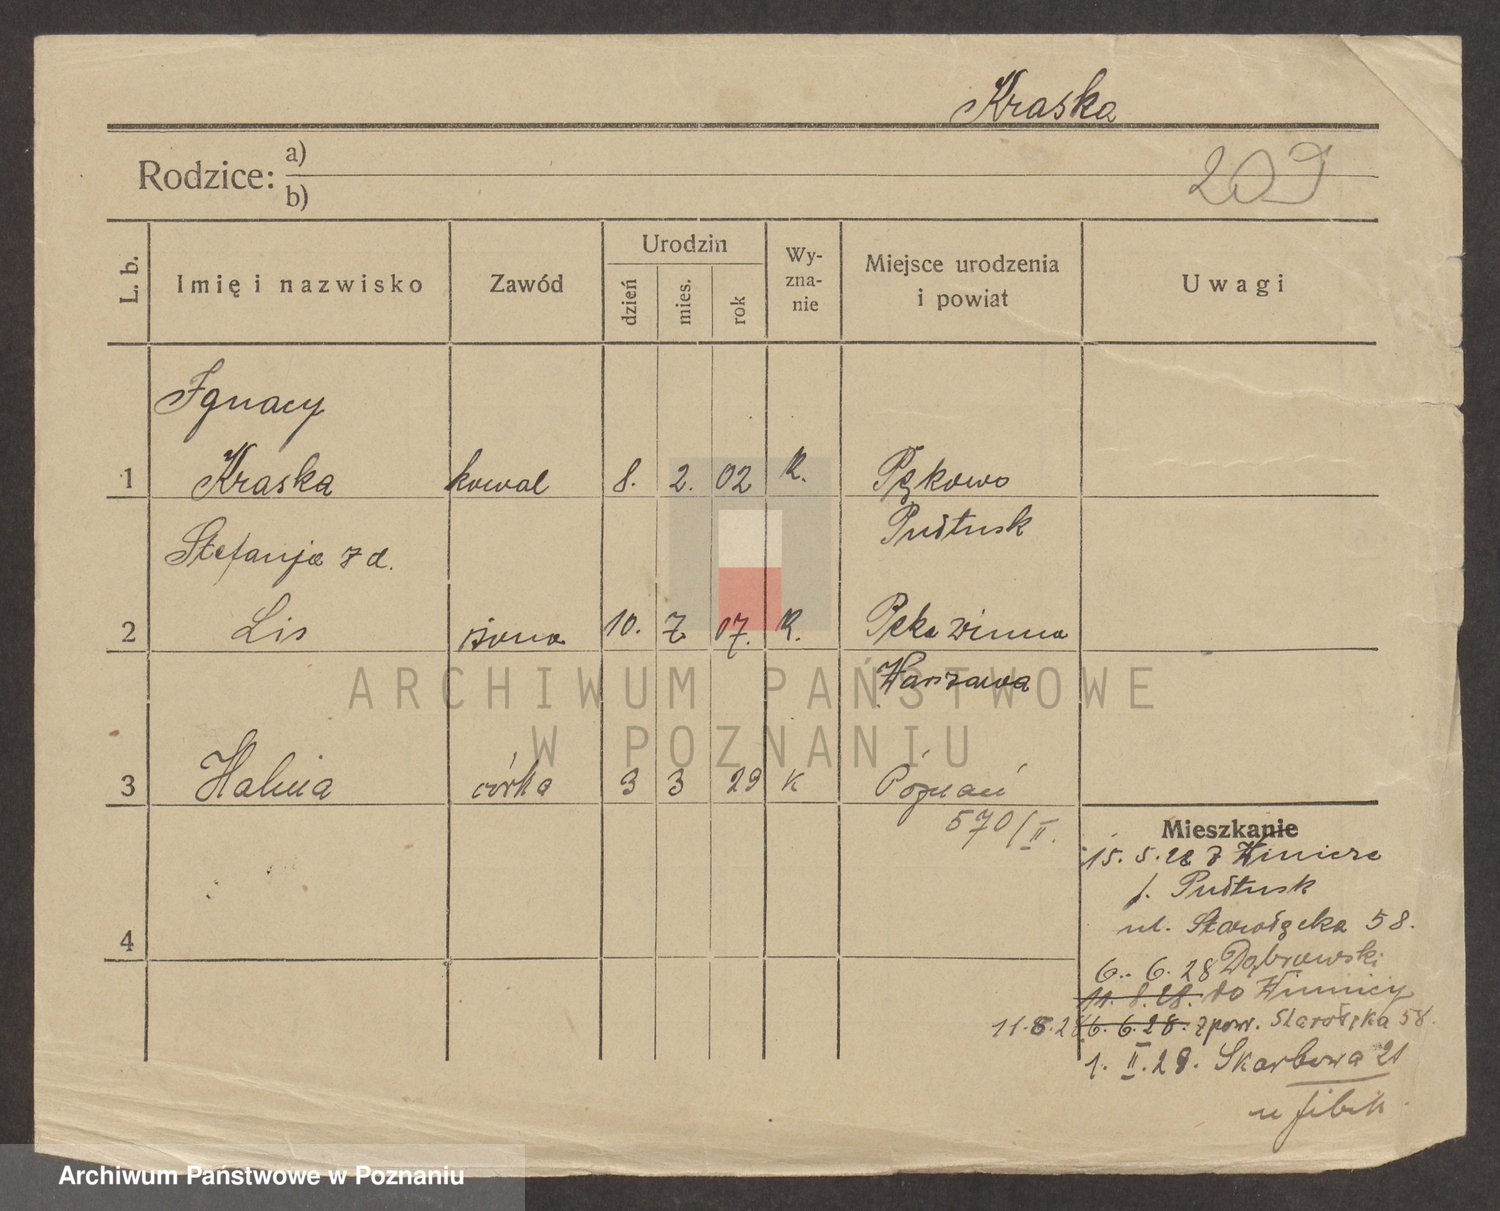 Kraska
Rodzice: a)
b)
209
L. b.
Imię i nazwisko
Zawód
Urodzin
dzień
mies.
rok
Wy-
zna-
nie
Miejsce urodzenia
i powiat
Uwagi
Ignacy
1 Kraska kowal 8. 2. 02 K. Pękowo
Pułtusk
Stefanja z d.
2 Lis żona 10. 7. 07. K. Pęka
Warszawa
3 Halina córka 3 3 29 K Poznań
570/II.
4
Mieszkanie
15. 5. 28 z
p. Pułtusk
ul. Starołęcka 58.
6. 6. 28 Dąbrowski
11. 8. 28. do Winnicy
11.8.28 6. 6. 28. z pow. Starołęka 58.
1. II. 29. Skarbowa 21
u
ARCHIWUM PAŃSTWOWE
W POZNANIU
Archiwum Państwowe w Poznaniu